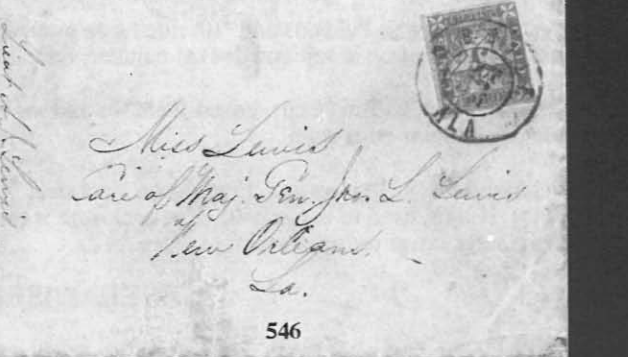 Miss Lewis
Care of Maj. Gen. Jno. L. Lewis
New Orleans.
La.
ALA
546